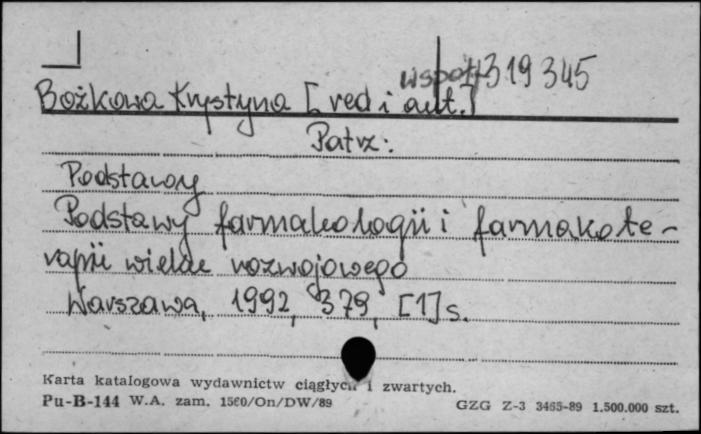 współ 319 345
Bożkowa Krystyna [red i aut.]
Patrz:
Podstawy
Podstawy farmakologii i farmakote-
rapii wieku rozwojowego
Warszawa, 1992, 379, [1] s.
Karta katalogowa wydawnictw ciągłych i zwartych.
Pu-B-144 W.A. zam. 1560/On/DW/89 GZG Z-3 3465-89 1.500.000 szt.